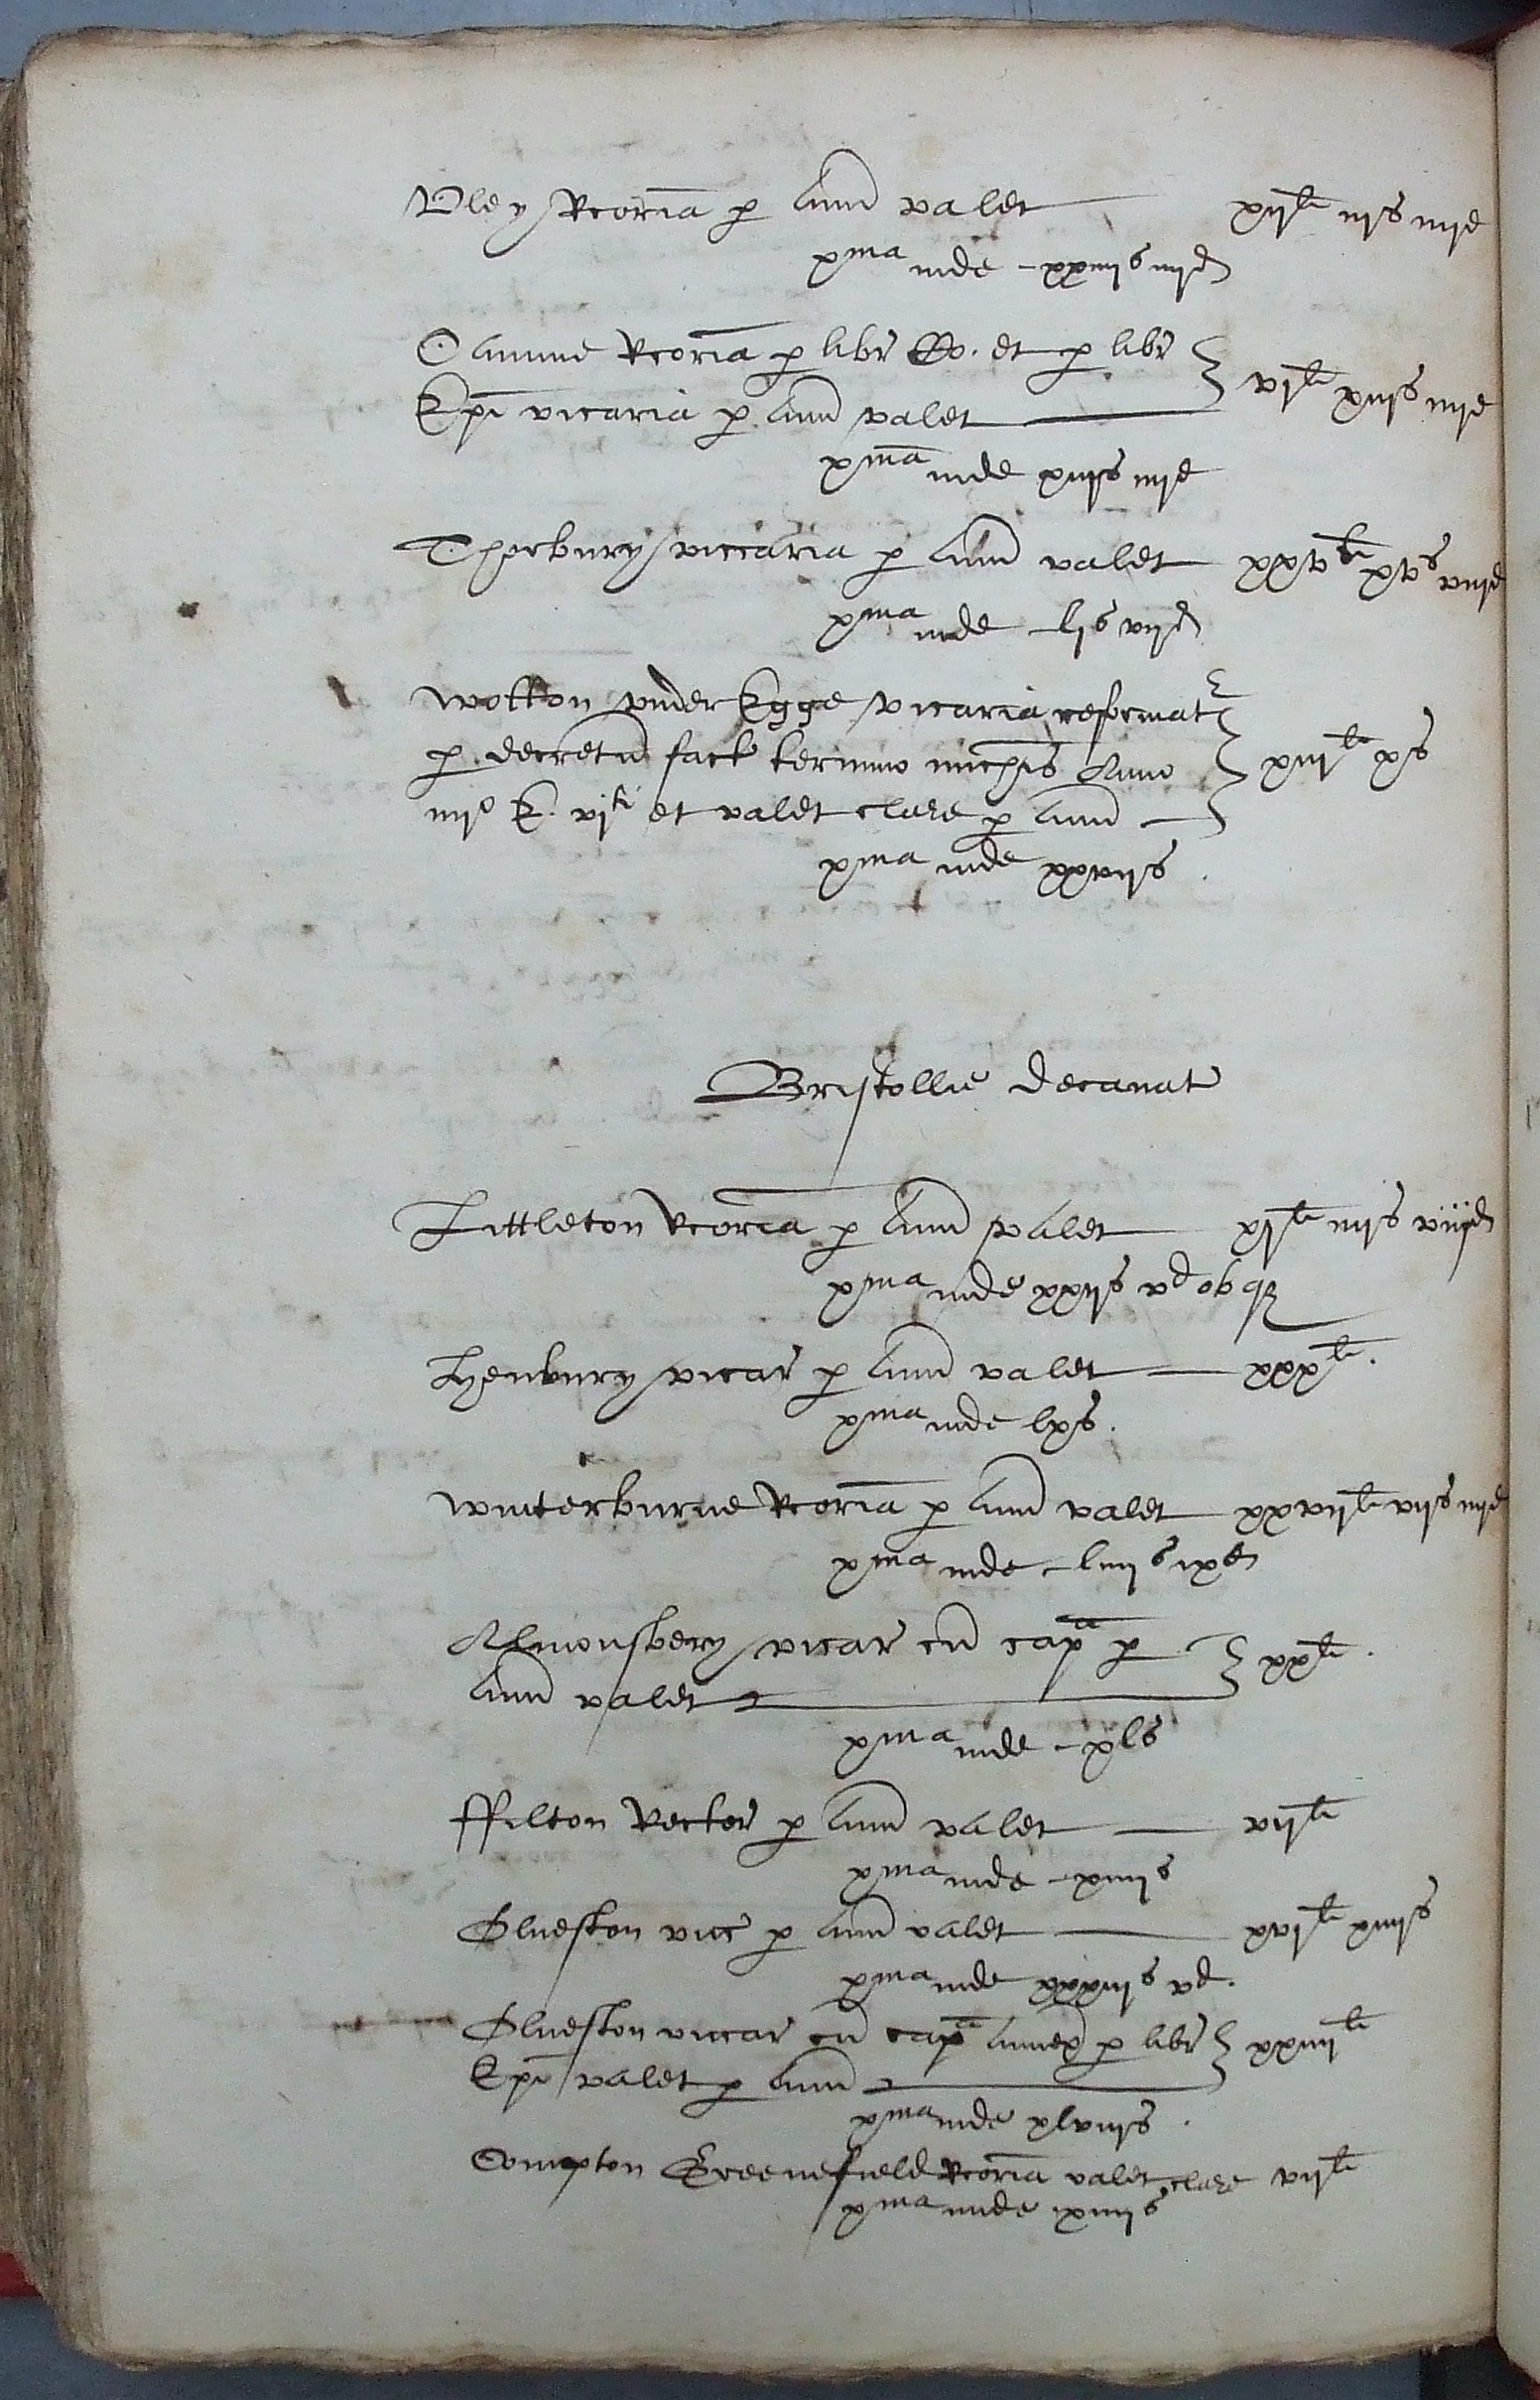 Uley Rcoria p Ann valet xijli iijs iiijd
xma inde - xxiiijs iiijd
Camme Rcoria p libr et p libr
Epi vicaria p Ann valet vjli xiijs iiijd
xma inde xiijs iiijd
Thorbury viccaria p Ann valet xxvli xvs viijd
xma inde - ljs vijd
Wotton under Egge vicaria reformat
p decretu fact termino michis Anno
iiijo E. vjti et valet clare p Ann xiijli xs
xma inde xxvijs
Bristollie Decanat
Littleton Rcoria p Ann valet xjli iiijs viijd
xma inde xxijs vd ob q
Henbury vicar p Ann valet xxxli
xma inde lxs
Winterburne Rcoria p Ann valet xxvijli vijs iiijd
xma inde - liiijs ixd
Almonsbery vicar cu capa p
Ann valet xxli
xma inde - xls
ffilton Rector p Ann valet vijli
xma inde - xiiijs
Olueston vicc p Ann valet xvjli xiiijs
xma inde xxxiijs vd
Olueston viccar cu capa Annex p libr
Epi valet p Ann xxiiijli
xma inde xlviijs
Compton Greenefield Rcoria valet clare vijli
xma inde xiiijs